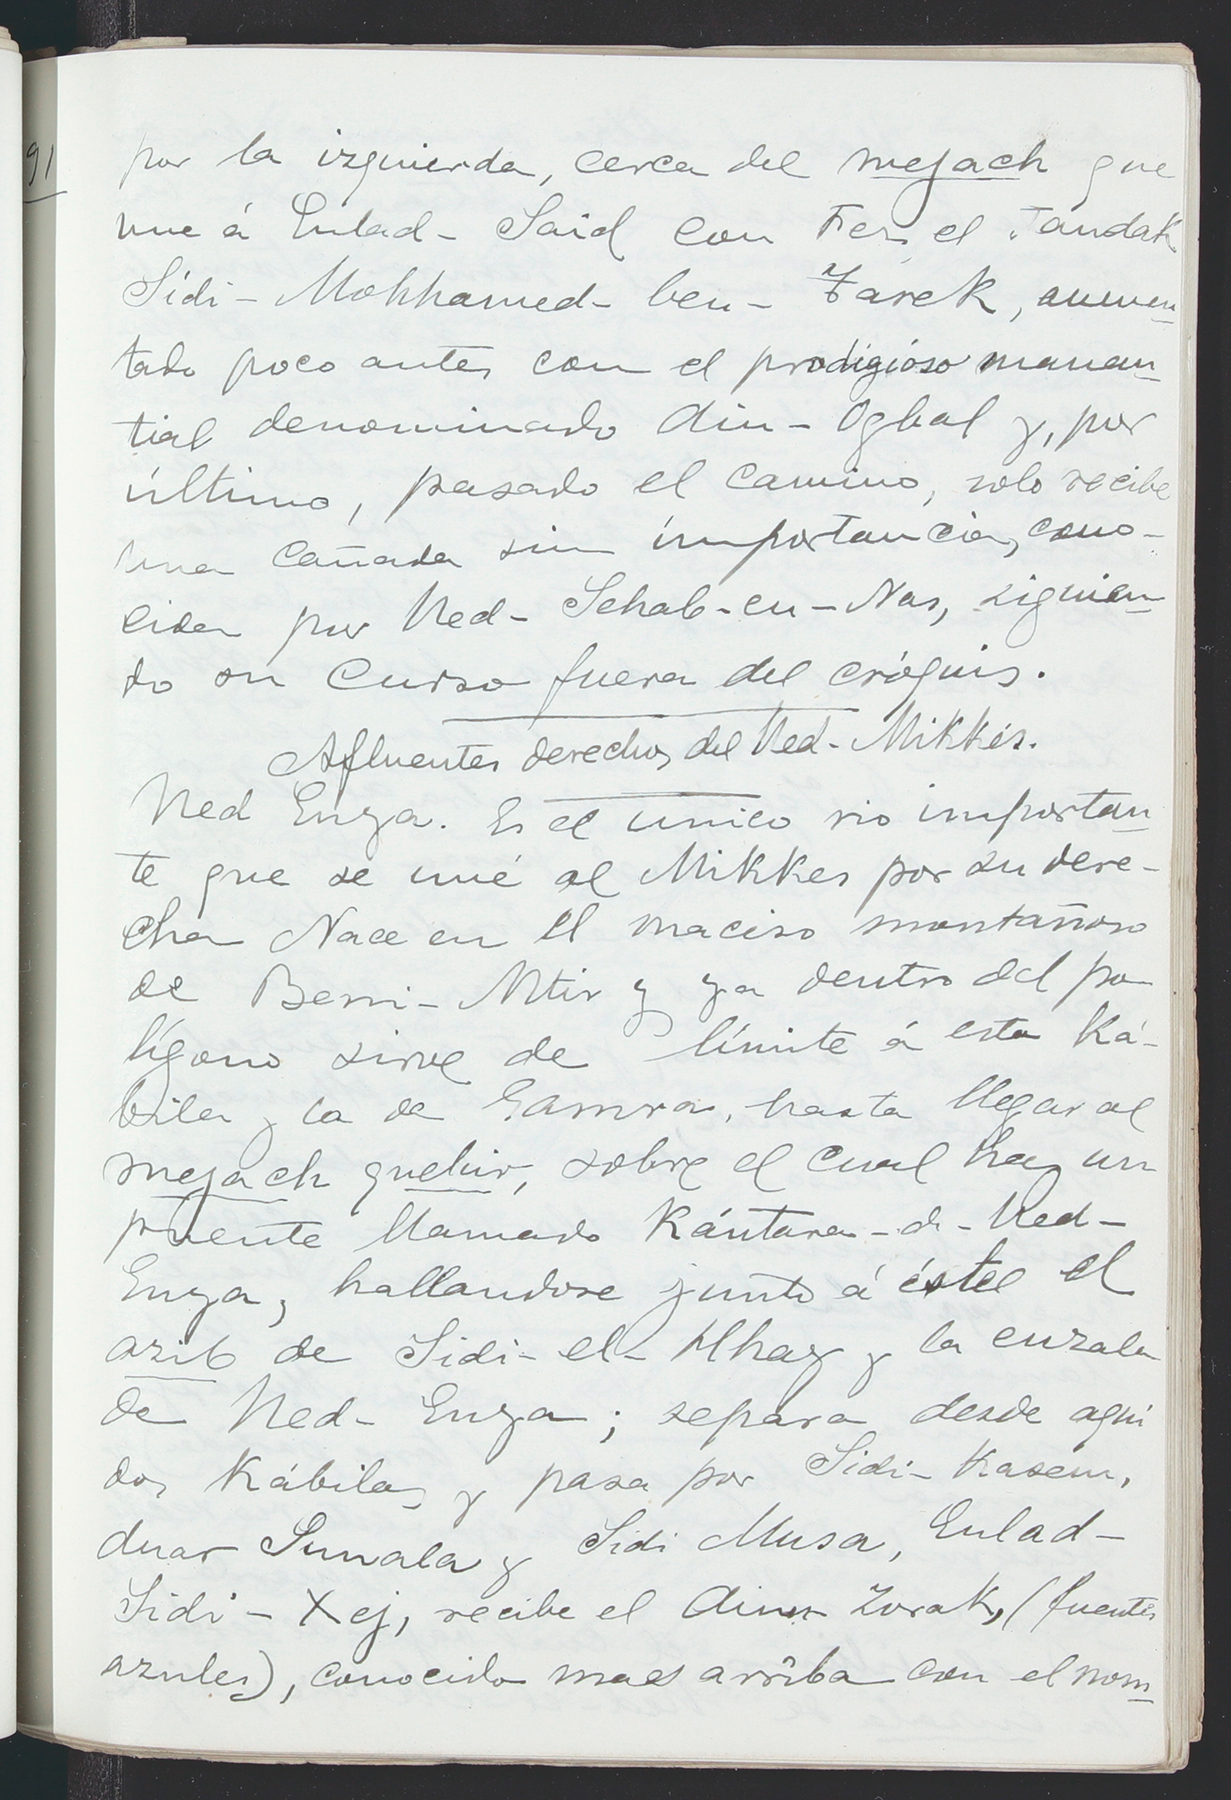 91
por la izquierda, cerca del mejach que
une á Eulad-Said con Fez, el Jandak
Sidi-Mohhamed-ben-Zarek, aumen
tado poco antes con el prodigioso manan
tial denominado Ain-Ogbal y, por
último, pasado el camino, solo recibe
una cañada sin importancia, cono-
cida por Ued-Sehab-en-Nas, siguien
do su curso fuera del cróquis.
Afluentes derechos del Ued-Mikkés.
Ued Enza. Es el unico rio importan
te que se uné al Mikkes por su dere-
cha Nace en el maciso montañoso
de Beni-Mtir y ya dentro del po
lígono sirve de límite á esta Ká-
bila y la de Gamra, hasta llegar al
mejach quebir, sobre el cual hay un
puente llamado Kántara-d-Ued-
Enza, hallandose junto á éste el
azib de Sidi-el-Hhay y la enzala
de Ued-Enza; separa desde aqui
dos Kábilas y pasa por Sidi-Kasem,
duar Sunala y Sidi Musa, Eulad-
Sidi-Xej, recibe el Ainn Zorak, (fuentes
azules), conocido mas arriba con el nom